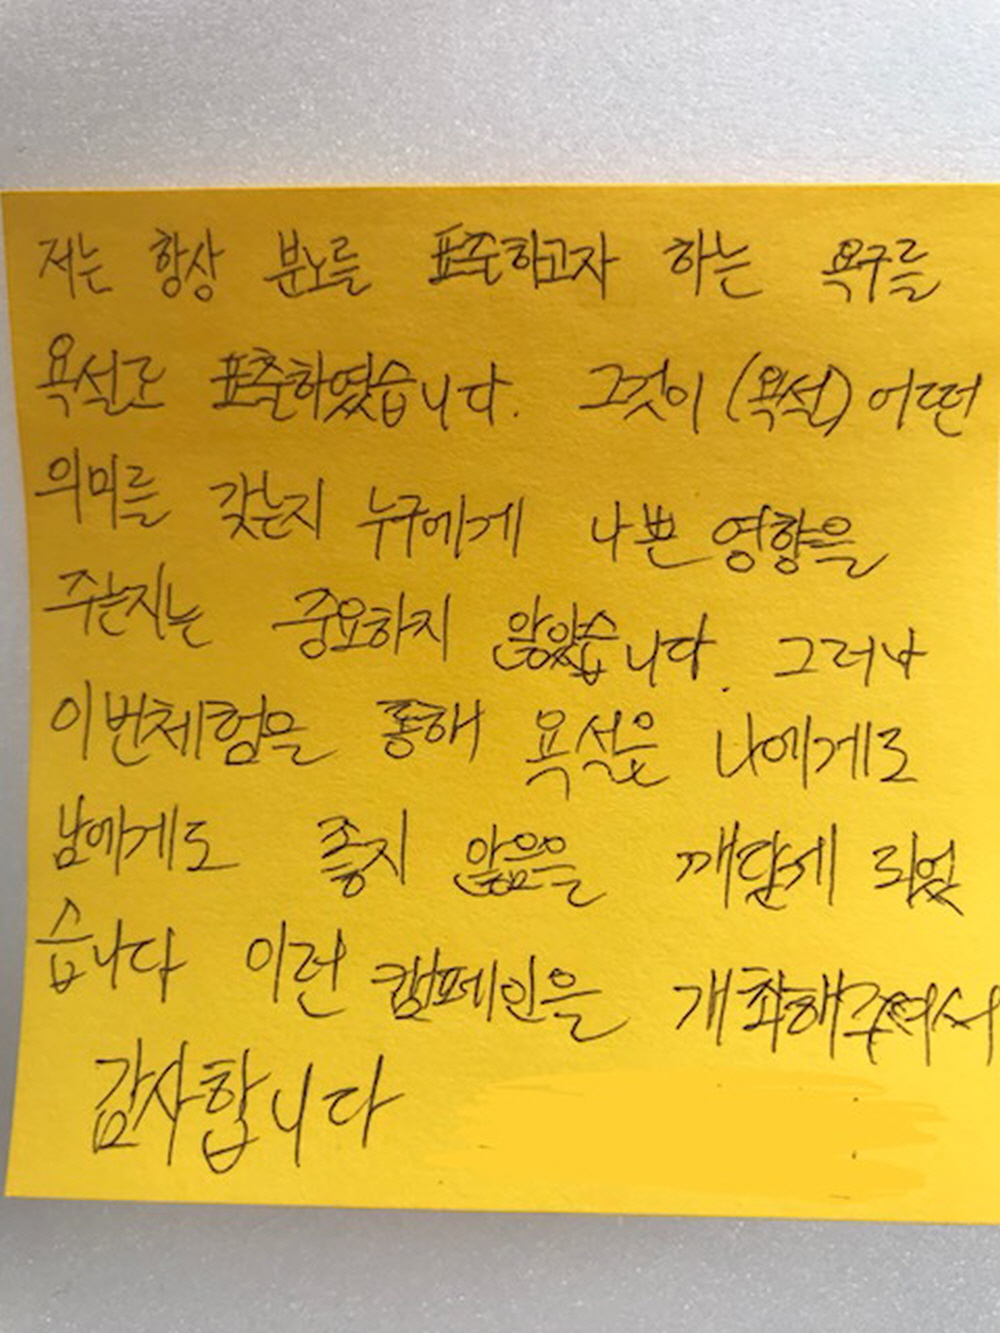 저는 항상 분노를 표출하고자 하는 욕구를
욕설로 표출하였습니다. 그것이 (욕설) 어떤
의미를 갖는지 누구에게 나쁜 영향을
주는지는 중요하지 않았습니다. 그러나
이번체험을 통해 욕설은 나에게도
남에게도 좋지 않음을 깨닫게 되었
습니다 이런 캠페인을 개최해주셔서
감사합니다